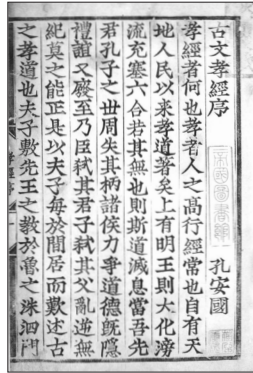 古文孝經序
孔安國
孝經者何也孝者人之髙行經常也自有天
地人民以来孝道著矣上有明王則大化滂
流充塞六合若其無也則斯道滅息當吾先
君孔子之世周失其柄諸侯力爭道德既隱
禮誼又廢至乃臣弑其君子弑其父亂逆無
紀莫之能正是以夫子每於閒居而歎述古
之孝道也夫子敷先王之教於魯之洙泗門